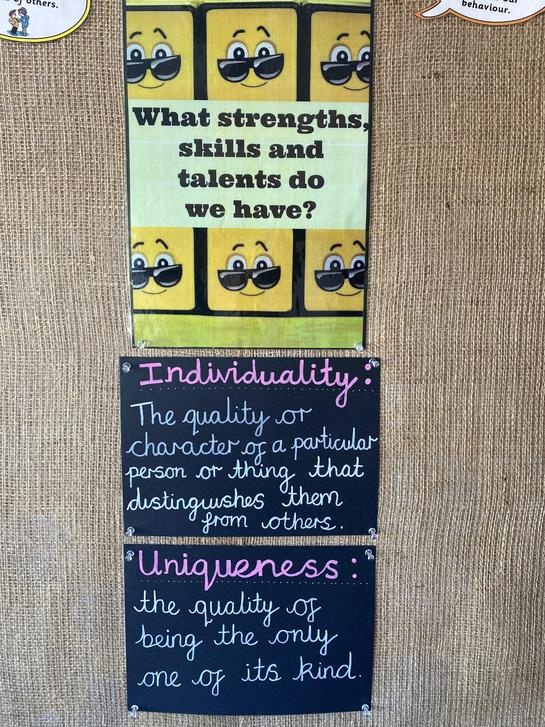 of others.
behaviour.
What strengths,
skills and
talents do
we have?
Individuality:
The quality or
character of a particular
person or thing that
distinguishes them
from others.
Uniqueness:
the quality of
being the only
one of its kind.